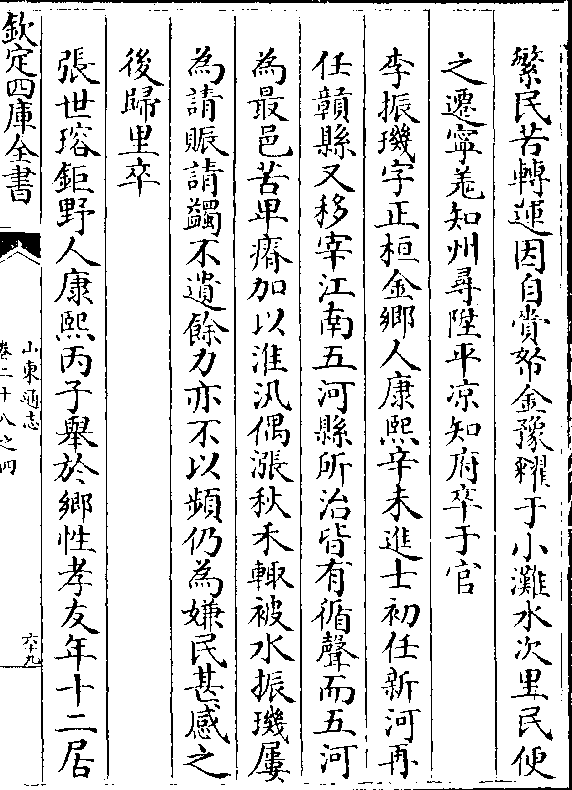 繁民苦轉運因自賫帑金豫糴于小灘水次里民便
之遷寧羗知州尋陞平凉知府卒于官
李振璣字正桓金鄉人康熙辛未進士初任新河再
任贛縣又移宰江南五河縣所治皆有循聲而五河
為最邑苦卑瘠加以淮汎偶漲秋禾輙被水振璣屢
為請賑請蠲不遺餘力亦不以頻仍為嫌民甚感之
後歸里卒
張世瑢鉅野人康熙丙子舉於鄉性孝友年十二居
欽定四庫全書
山東通志
卷二十八之四
六十九